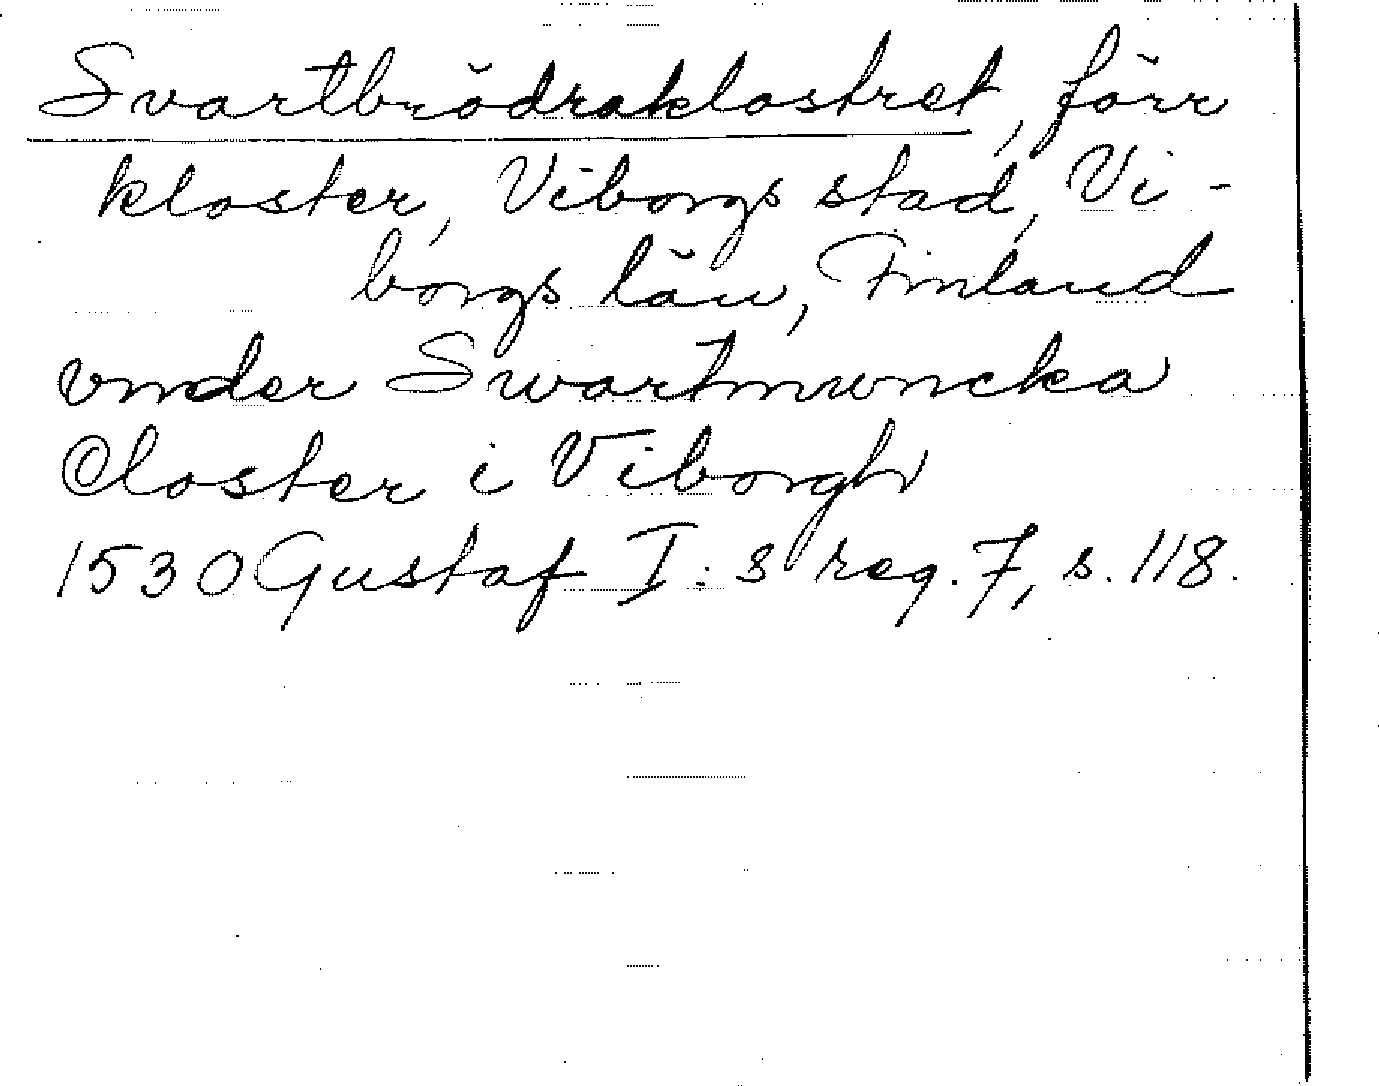 Svartbrödraklostret, förr
kloster, Viborgs stad, Vi-
borgs län, Finland
vnder Swartmwncka
Closter i Viborgh
1530 Gustaf I:s reg. 7, s. 118.